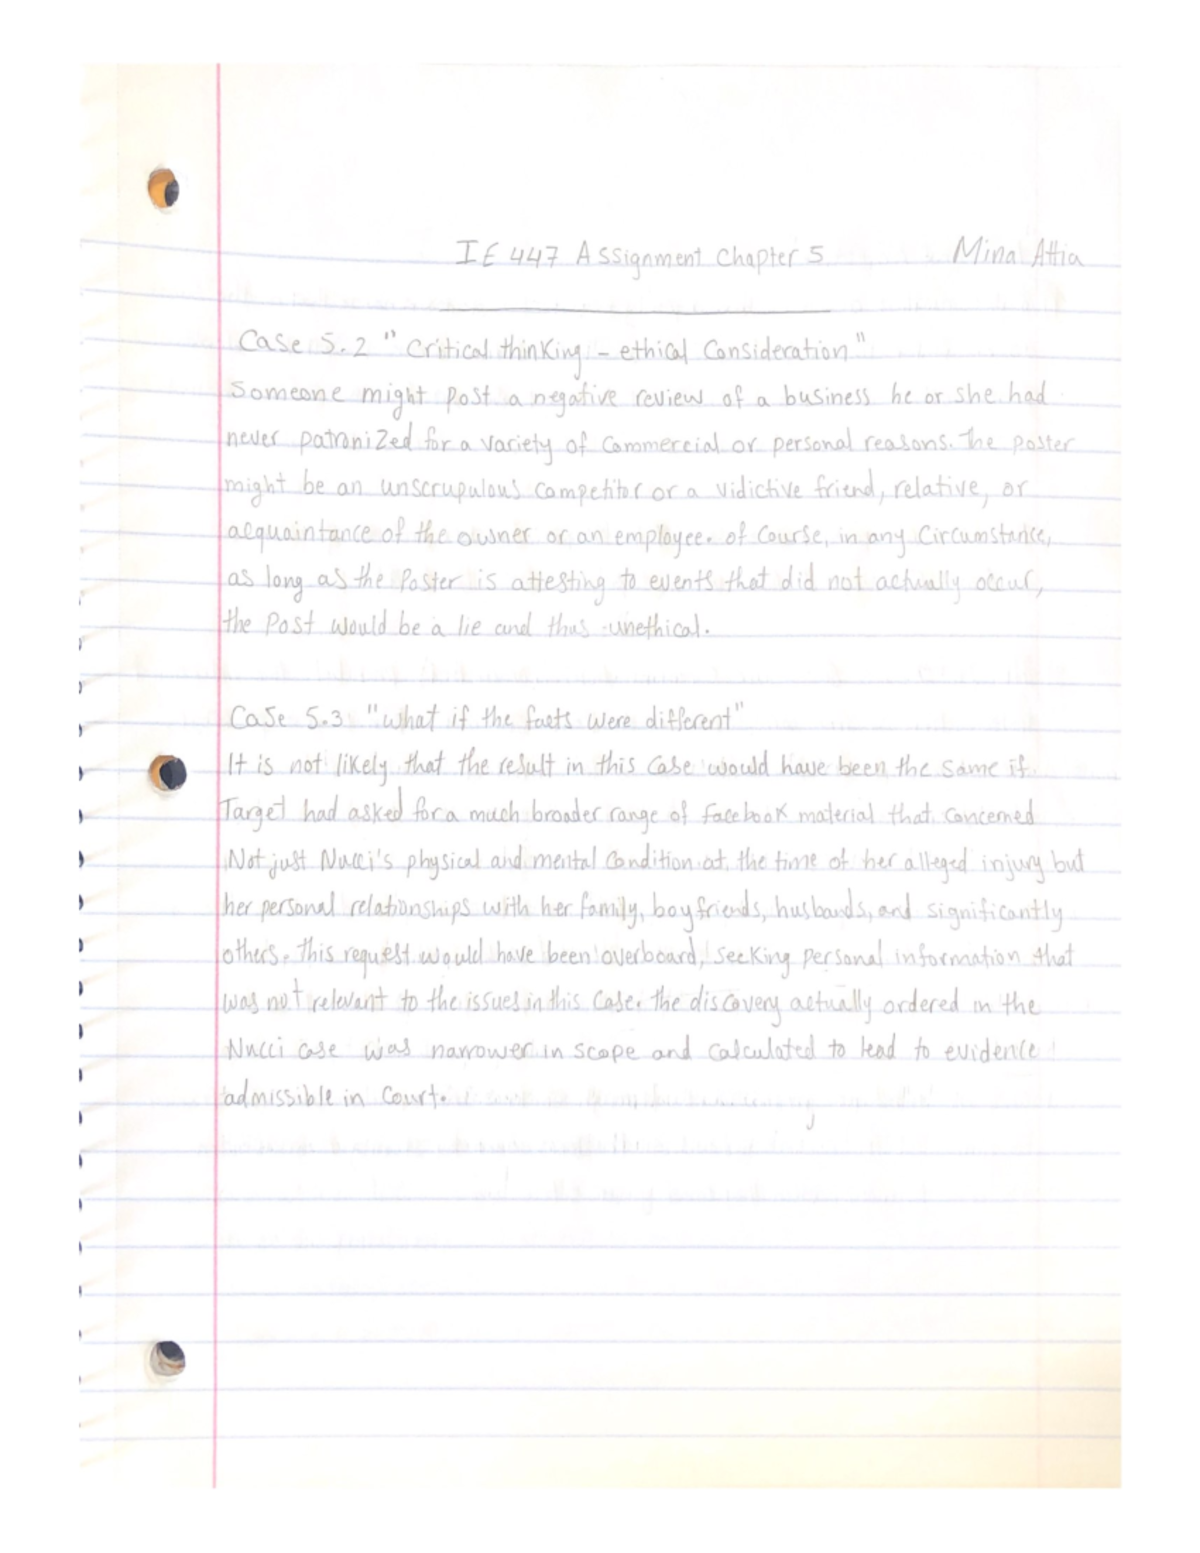 IE 447 Assignment Chapter 5 Mina Attia
Case 5.2 "Critical thinking - ethical Consideration"
Someone might post a negative review of a business he or she had
never patronized for a variety of Commercial or personal reasons. The poster
might be an unscrupulous Competitor or a vidictive friend, relative, or
acquaintance of the owner or an employee. of Course, in any Circumstance,
as long as the Poster is attesting to events that did not actually occur,
the Post would be a lie and thus unethical.
Case 5.3 "what if the facts were different"
It is not likely that the result in this Case would have been the same if
Target had asked for a much broader range of facebook material that concerned
Not just Nucci's physical and mental Condition at the time of her alleged injury but
her personal relationships with her family, boyfriends, husbands, and significantly
others. This request would have been overboard, seeking personal information that
was not relevant to the issues in this Case. the discovery actually ordered in the
Nucci case was narrower in scope and calculated to lead to evidence
admissible in Court.